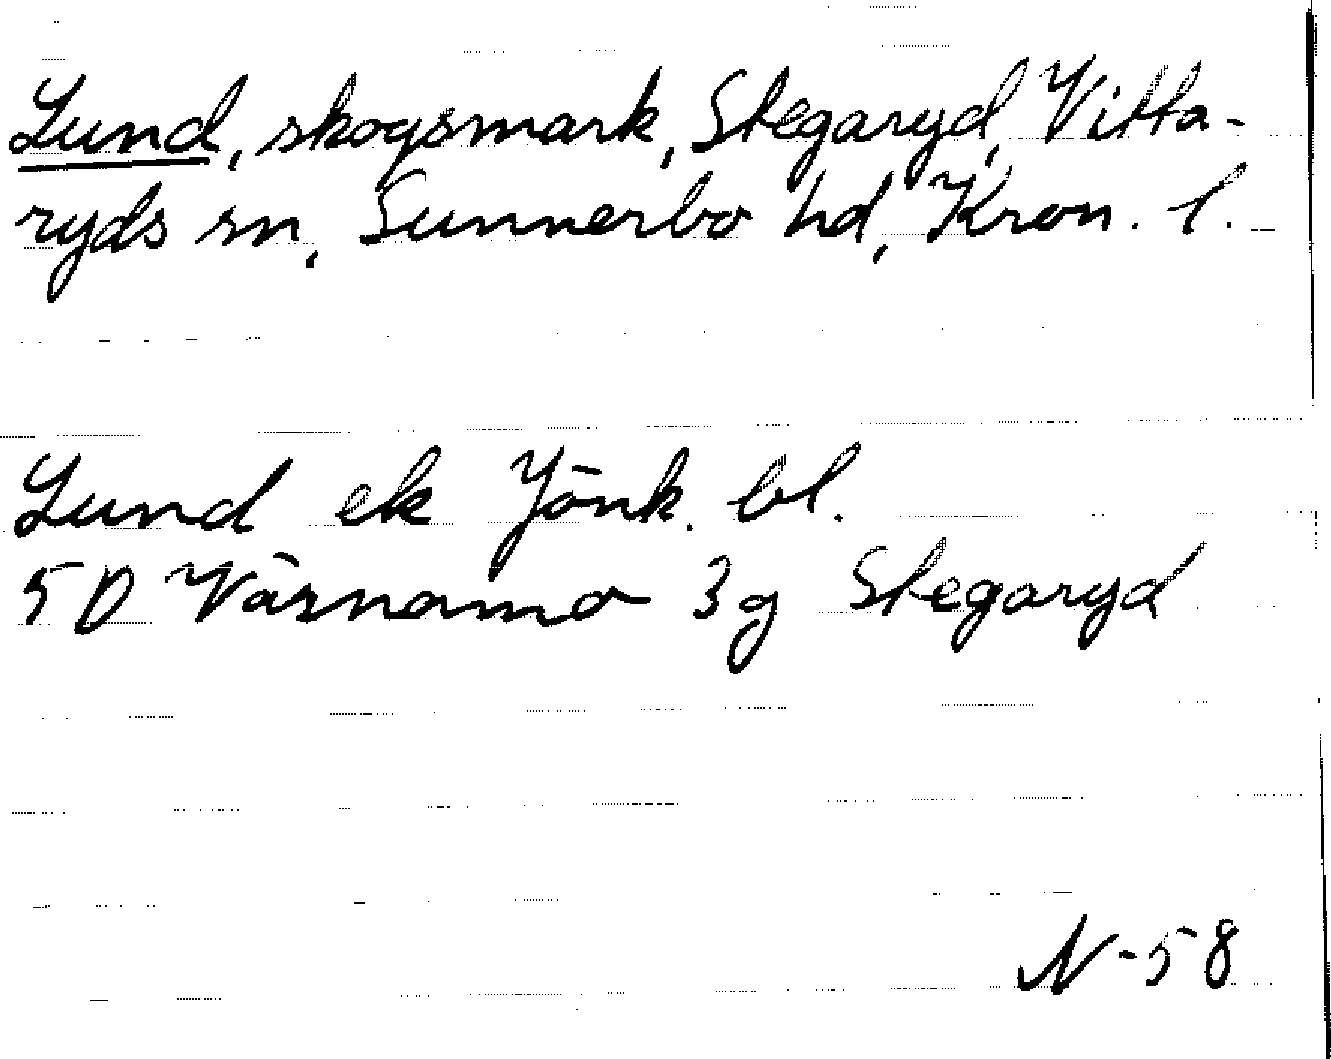 Lund, skogsmark, Stegaryd, Vitta-
ryds sn, Sunnerbo hd, Kron. l.
Lund ek Jönk. bl.
5D Värnamo 3g Stegaryd
N-58